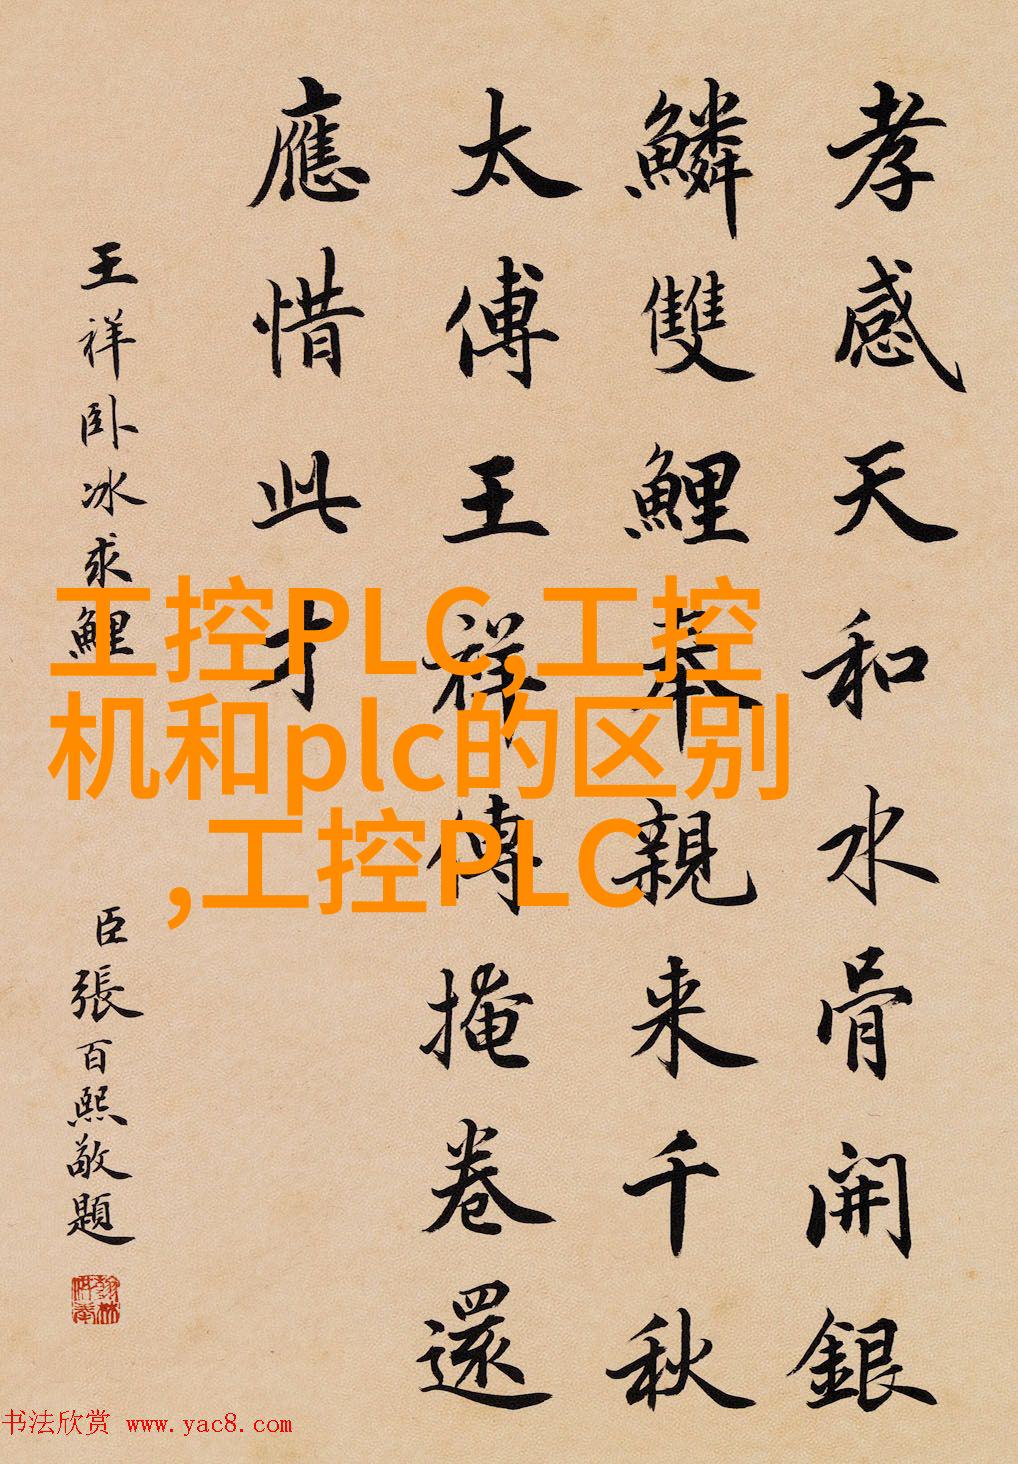 孝感天和水骨開銀
鱗雙鯉奉親来千秋
太傅王祥傳掩卷還
應惜此才
王祥卧冰求鯉
臣張百熙敬題
工控PLC,工控
机和plc的区别
,工控PLC
书法欣赏 www.yac8.com